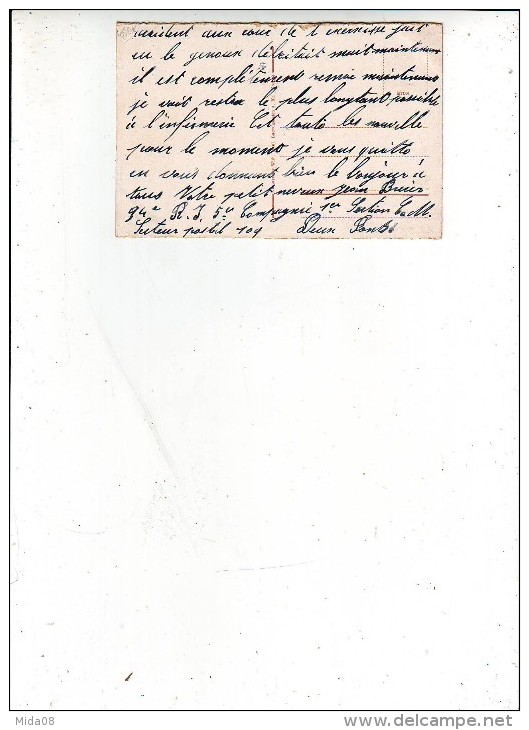 accident au cour de l'exercise fait
en le genoux maintenant
il est complètement remie maintenant
je vait restez le plus longtant possible
à l'enfirmerie Cit toute les nouvelle
pour le moment je vous quitte
en vous donnant bien le bonjour à
tous Votre petit neveux jean
94e R. I. 5e Compagnie 1er Section
Secteur postal 109 Deux Ponts
Mida08
delcampe.net